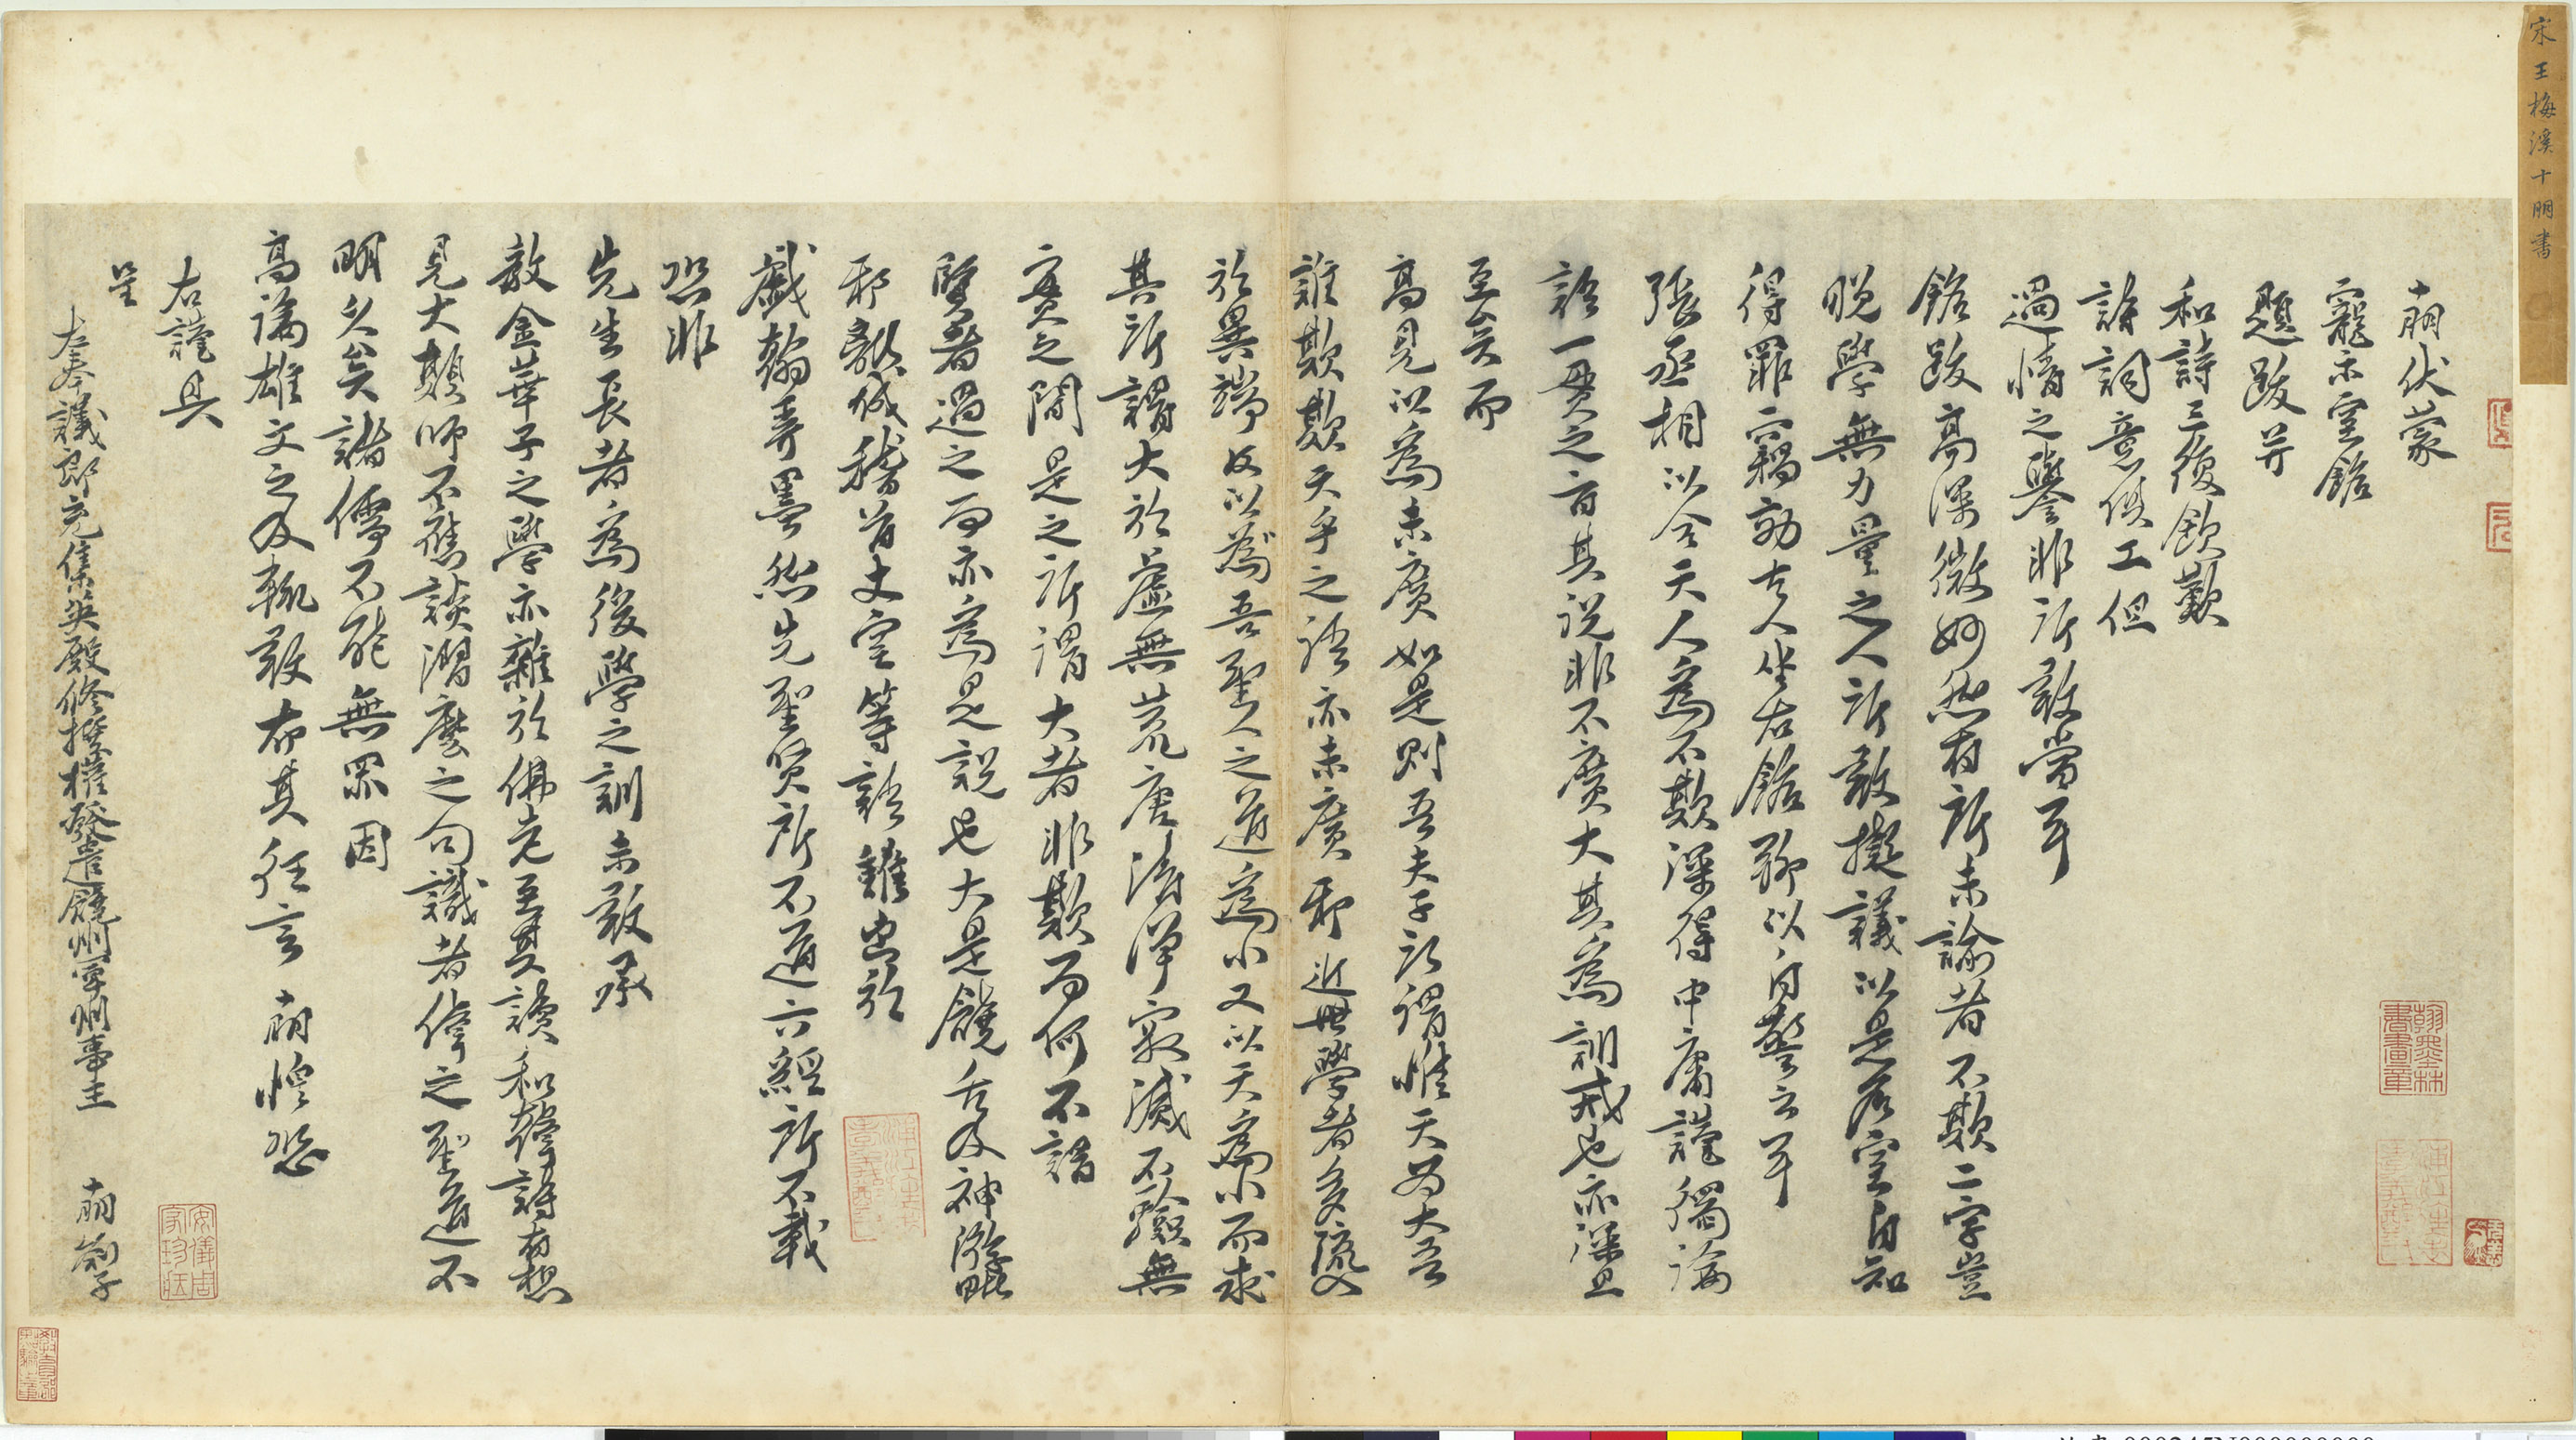 宋王梅溪十朋書
十朋伏蒙
寵示室銘
題跋并
和詩三復欽歎
詩詞意俱工但
過情之譽非所敢當耳
銘跋高深微妙然有所未諭者不欺二字豈
晚學無力量之人所敢擬議以是名室自知
得罪言竊効古人坐右銘聊以自警云耳
張丞相以合天人為不欺深得中庸謹獨論
語一貫之旨其說非不廣大其為訓戒也亦深且
至矣而
高見以為未廣如是則吾夫子所謂惟天為大吾
誰欺欺天乎之語亦未廣耶近世學者多流入
於異端反以為吾聖人之道為小又以天為小而求
其所謂大於虛無荒唐清淨寂滅不驗無
實之間是之所謂大者非欺而何不諳
賢者過之而亦為是說也大是饒舌及神游
耶
稽首丈室等語雖出於
戲翰弄墨然先聖賢所不道六經所不載
恐非
先生長者為後學之訓未敢承
教金華子之學亦雜於佛老至其讀和詩有想
見大顛師不應談溜麼之句識者
之聖道不
明久矣諸儒不能無罪因
高論雄文之及輒敢布其狂言 十朋惶恐
右謹具
呈
左奉議郎充集英殿修撰權發遣饒州軍州事王 十朋 劄子
翰墨林書畫章
安儀周家珍藏